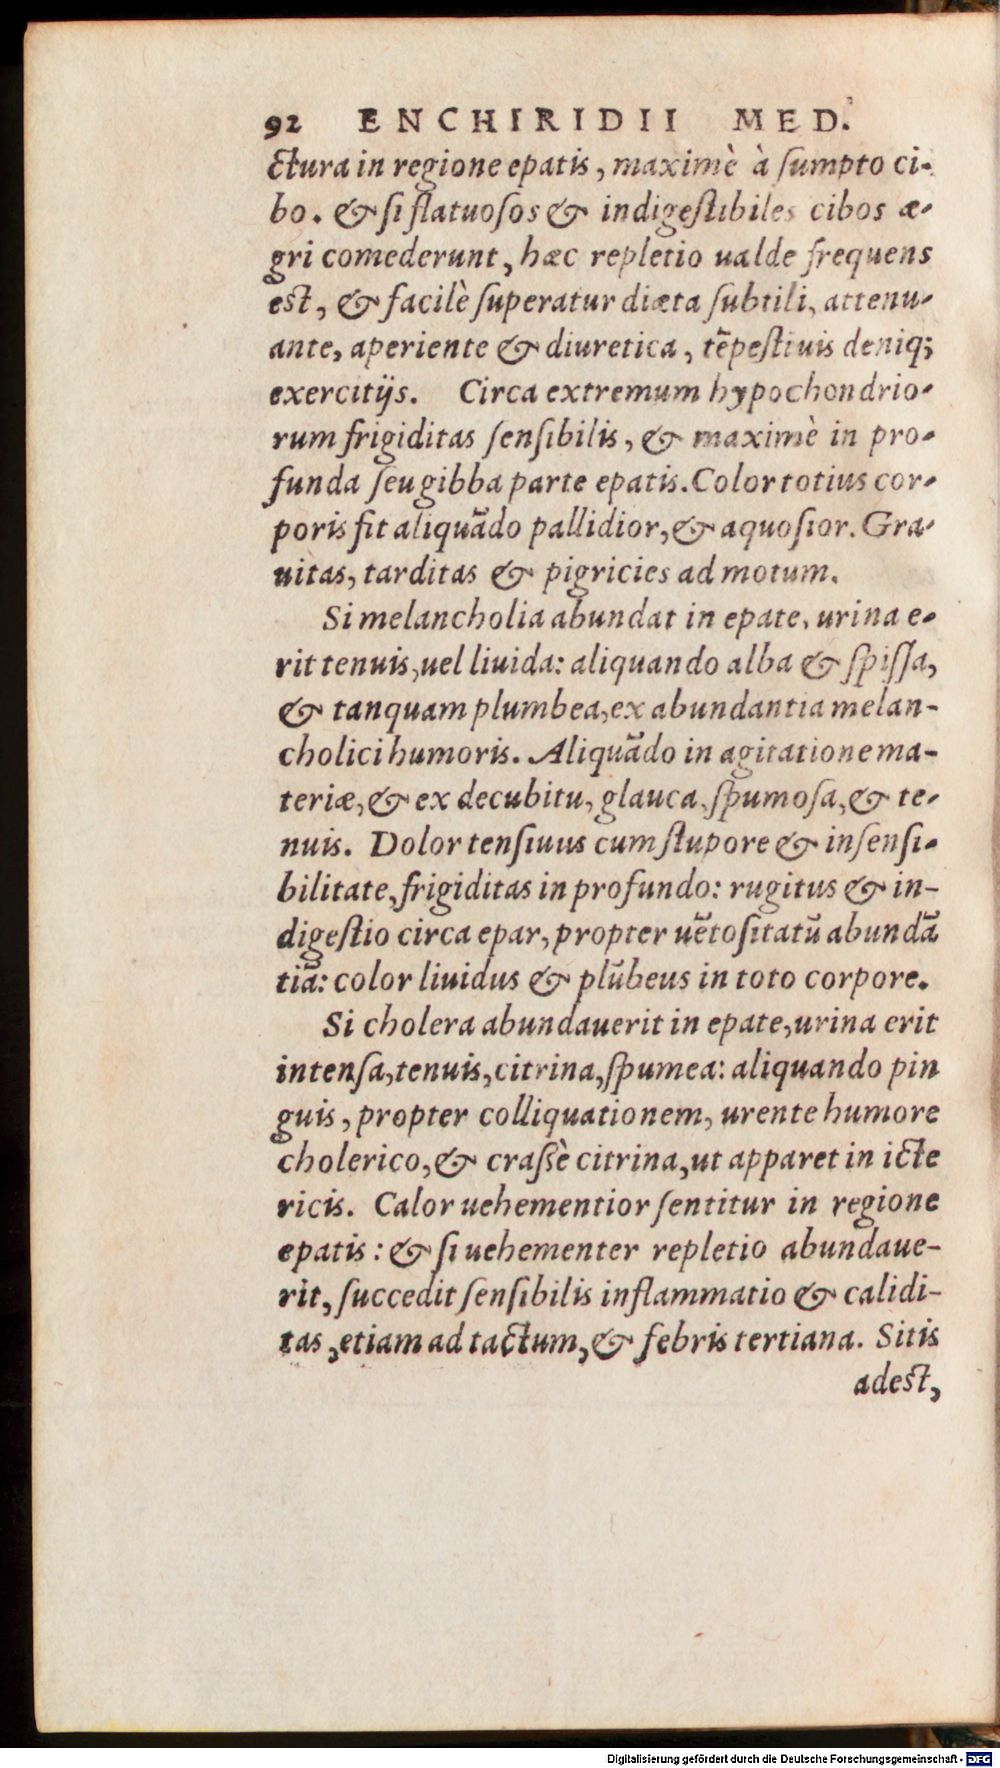 92 ENCHIRIDII MED.
ctura in regione epatis, maximè à ſumpto ci-
bo. & ſi flatuoſos & indigeſtibiles cibos æ-
gri comederunt, hæc repletio ualde frequens
est, & facilè ſuperatur diæta ſubtili, attenu-
ante, aperiente & diuretica, tẽpeſtiuis deniq;
exercitijs. Circa extremum hypochondrio-
rum frigiditas ſenſibilis, & maximè in pro-
funda ſeu gibba parte epatis. Color totius cor-
poris fit aliquãdo pallidior, & aquoſior. Gra-
uitas, tarditas & pigricies ad motum.
Si melancholia abundat in epate, urina e-
rit tenuis, uel liuida: aliquando alba & ſpiſſa,
& tanquam plumbea, ex abundantia melan-
cholici humoris. Aliquãdo in agitatione ma-
teriæ, & ex decubitu, glauca, ſpumoſa, & te-
nuis. Dolor tenſiuus cum ſtupore & inſenſi-
bilitate, frigiditas in profundo: rugitus & in-
digeſtio circa epar, propter uẽtoſitatũ abundã
tiã: color liuidus & plũbeus in toto corpore.
Si cholera abundauerit in epate, urina erit
intenſa, tenuis, citrina, ſpumea: aliquando pin
guis, propter colliquationem, urente humore
cholerico, & craſsè citrina, ut apparet in icte
ricis. Calor uehementior ſentitur in regione
epatis: & ſi uehementer repletio abundaue-
rit, ſuccedit ſenſibilis inflammatio & calidi-
tas, etiam ad tactum, & febris tertiana. Sitis
adest,
Digitalisierung gefördert durch die Deutsche Forschungsgemeinschaft - DFG